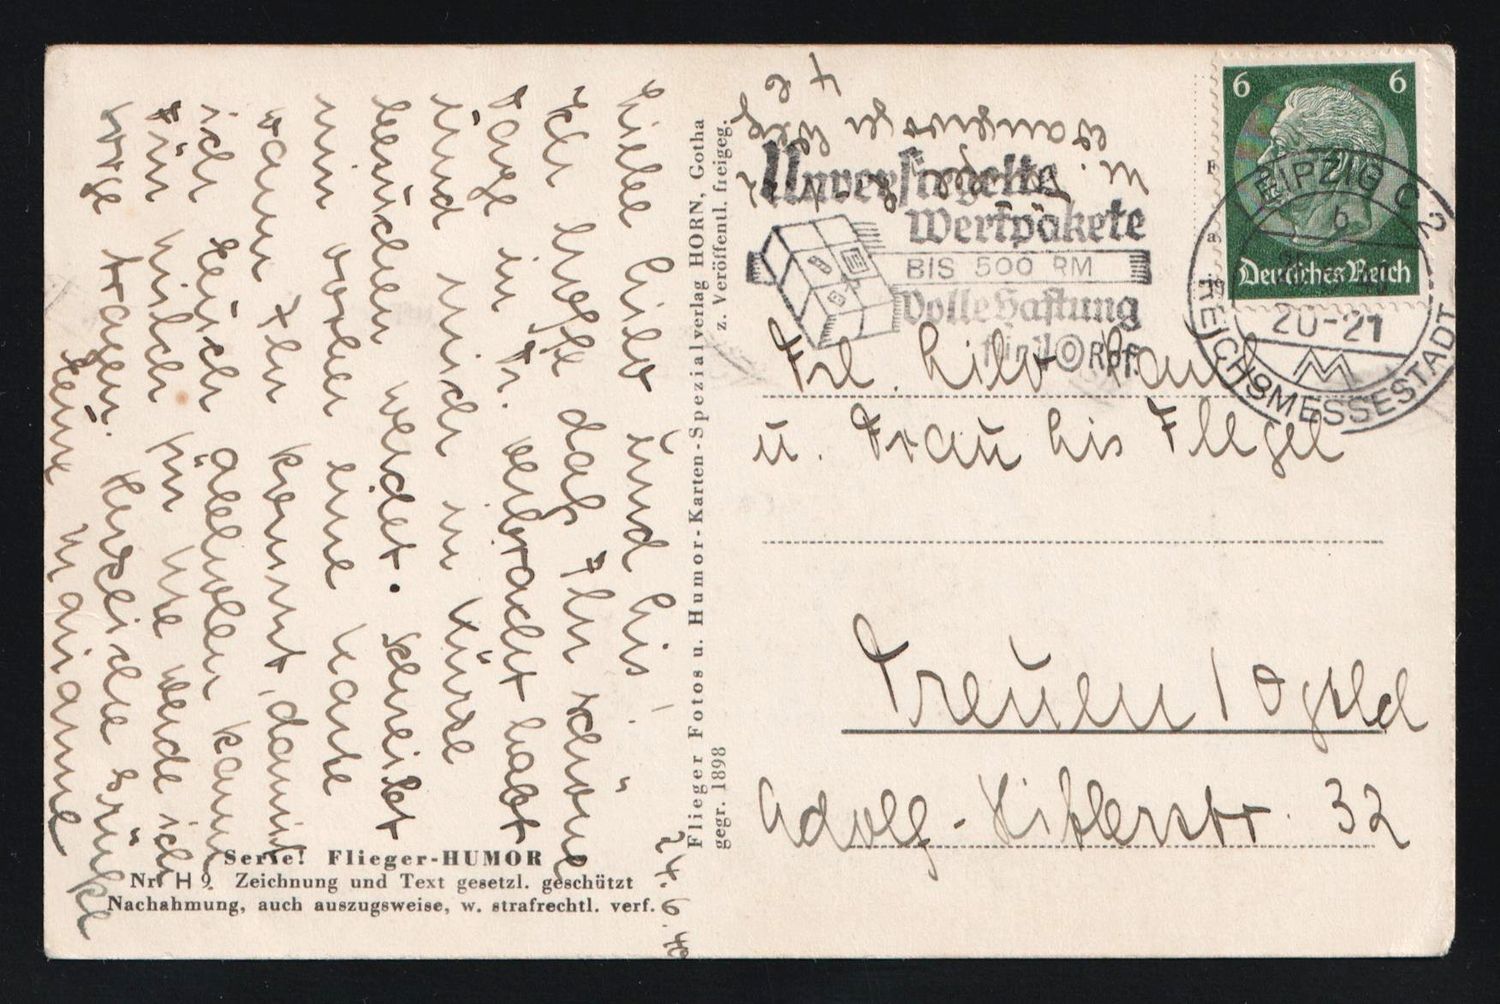 24.6.40
Liebe Lilo und Lis!
Ich hoffe daß Ihr schöne
Tage in Tr. verbracht habt
und mich in Kürze
besuchen werdet. Schreibt
mir vorher eine Karte
wann Ihr kommt, damit
ich Euch abholen kann
Für Milch für Ute werde ich
Sorge tragen. Herzliche Grüße
Eure Marianne
Serie! Flieger-HUMOR
Nr. H 9 Zeichnung und Text gesetzl. geschützt
Nachahmung, auch auszugsweise, w. strafrechtl. verf.
Flieger Fotos u. Humor-Karten-Spezialverlag HORN, Gotha
gegr. 1898 z. Veröffentl. freigeg.
Unversiegelte
Wertpakete
BIS 500 RM
Volle Haftung
für 10 Rpf.
6 6
Deutsches Reich
LEIPZIG C 2
b
20-21
REICHSMESSESTADT
Frl. Lilo Paul
u. Frau Lis Flegel
Treuen / Vogtld
Adolf-Hitlerstr. 32